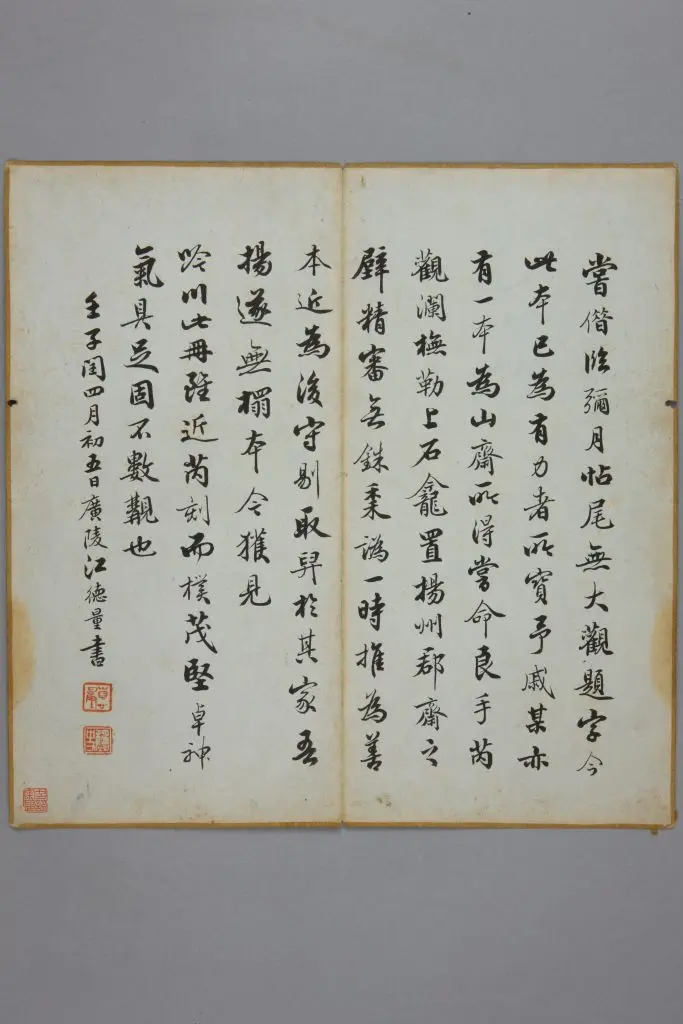 嘗借臨彌月帖尾無大觀題字今
此本已為有力者所寶予戚某亦
有一本為山齋所得嘗命良手芮
觀瀾橅勒上石龕置揚州郡齋之
壁精審無銖黍譌一時推為善
本近為後守剔取舁於其家吾
揚遂無榻本今獲見
吟川此冊雖近芮刻而樸茂堅卓神
氣具足固不數覯也
壬子閏四月初五日廣陵江德量書